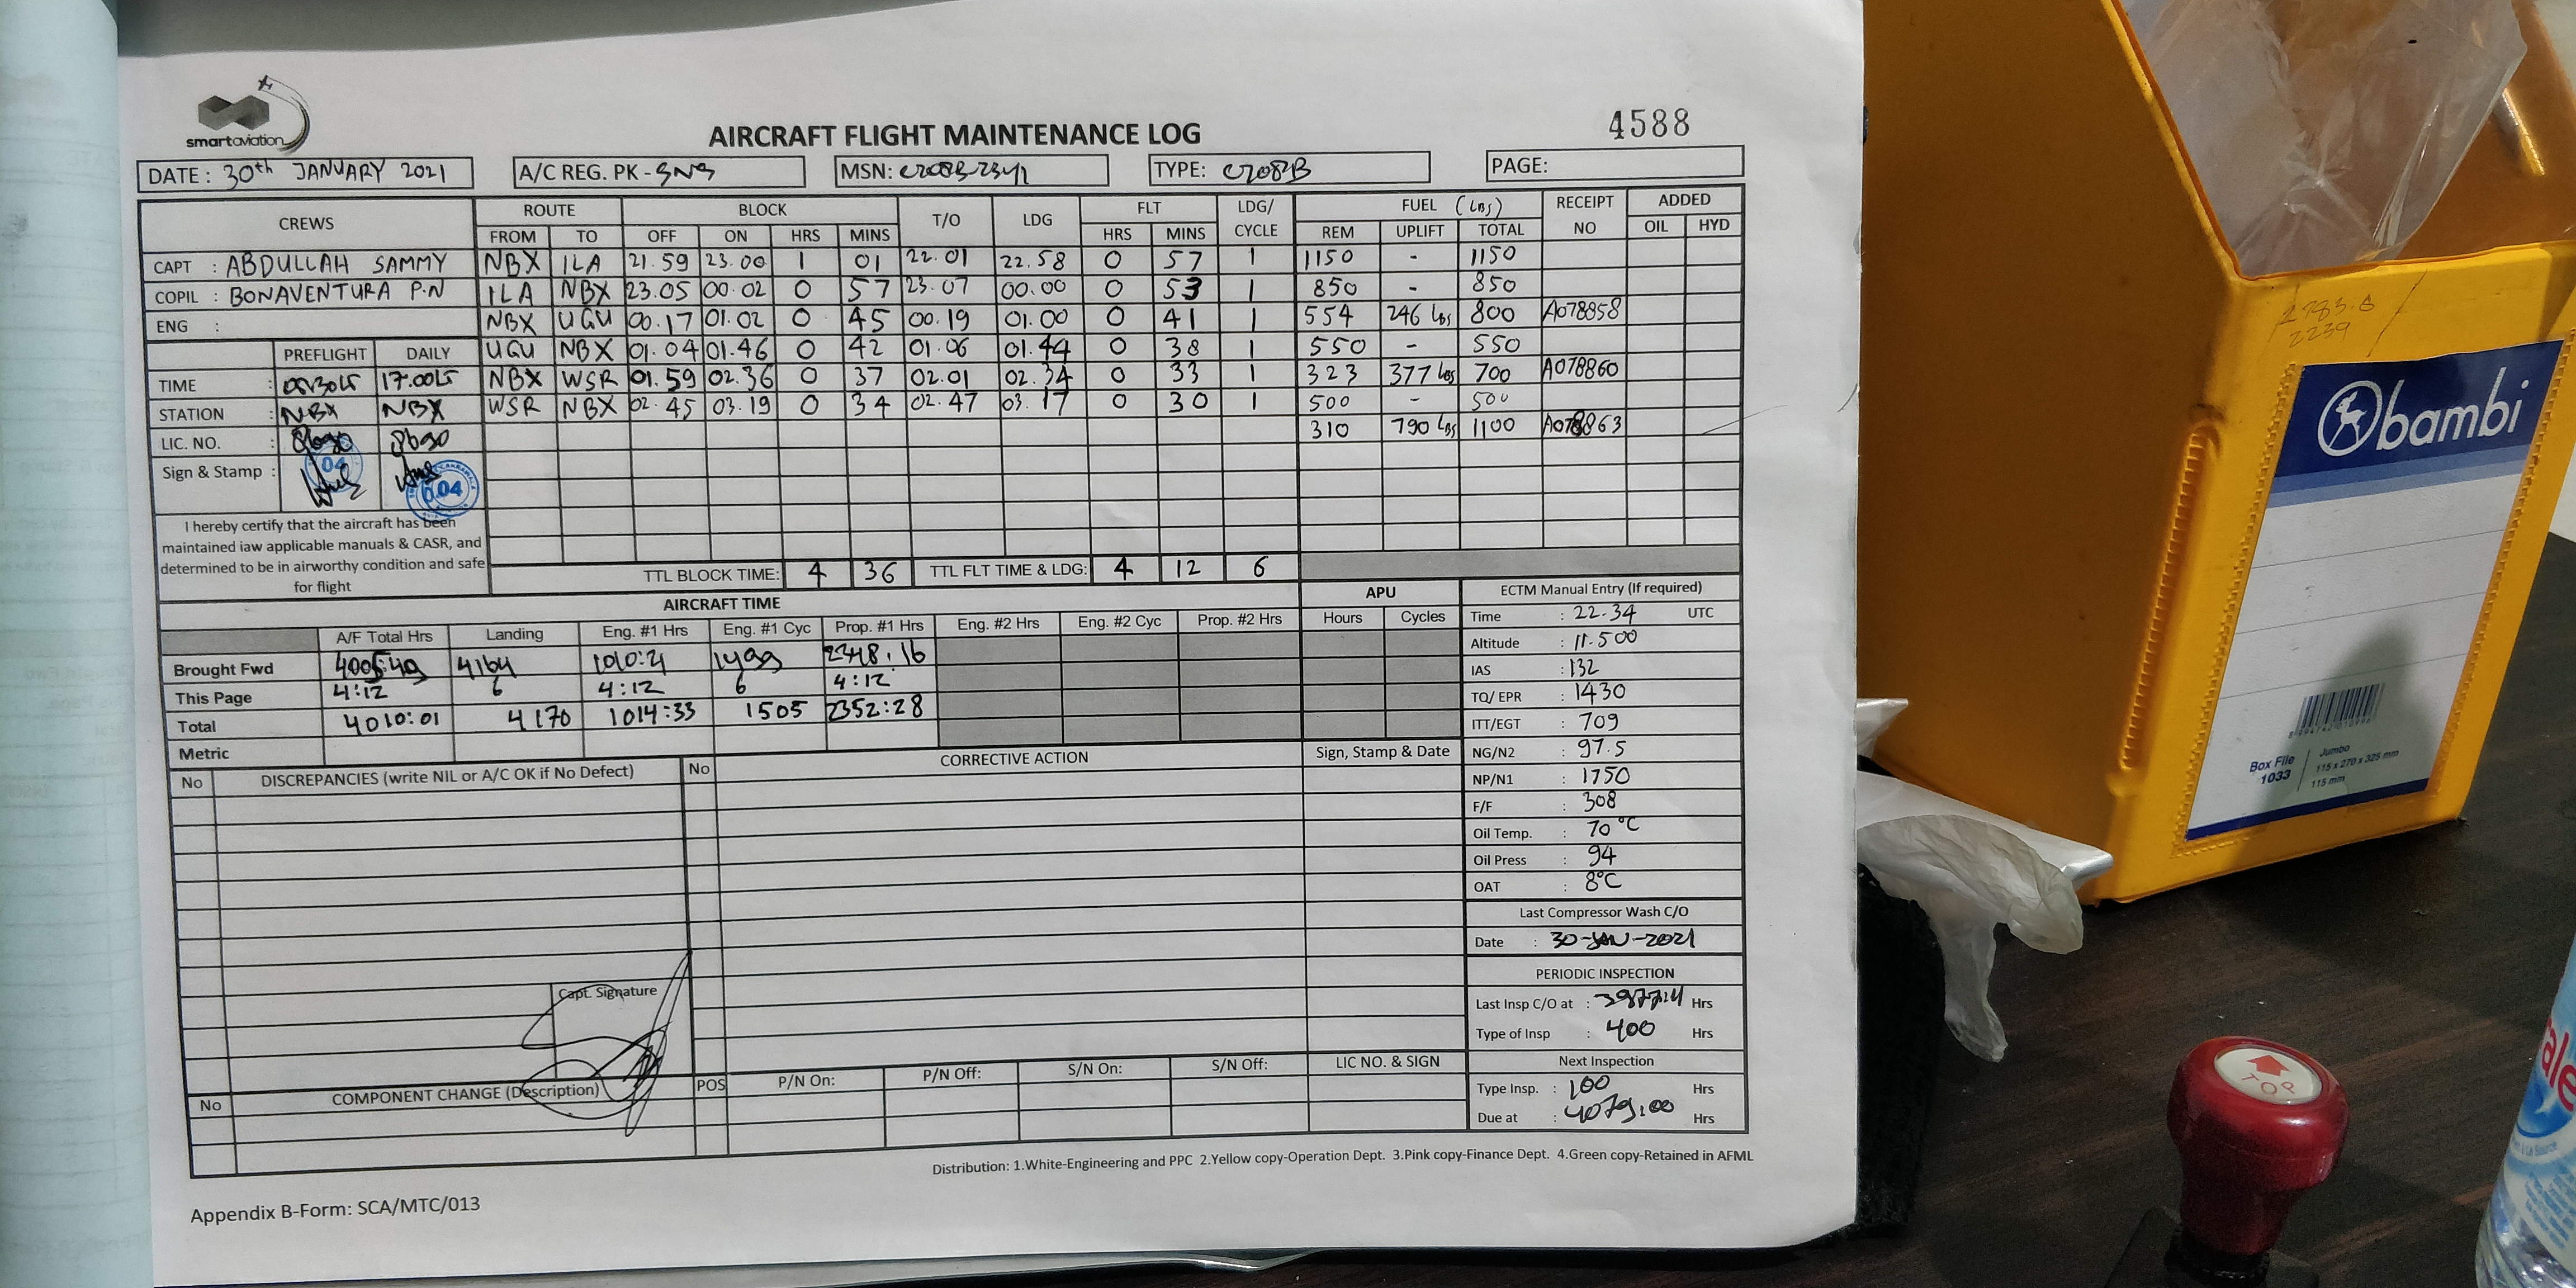 smartaviation
AIRCRAFT FLIGHT MAINTENANCE LOG
4588
DATE : 30th JANUARY 2021 A/C REG. PK - SNS MSN: C208B-2341 TYPE: C208B PAGE:
CREWS ROUTE BLOCK T/O LDG FLT LDG/ CYCLE FUEL (LBS) RECEIPT NO ADDED
FROM TO OFF ON HRS MINS HRS MINS REM UPLIFT TOTAL OIL HYD
CAPT : ABDULLAH SAMMY NBX ILA 21.59 23.00 1 01 22.01 22.58 0 57 1 1150 - 1150
COPIL : BONAVENTURA P.N ILA NBX 23.05 00.02 0 57 23.07 00.00 0 53 1 850 - 850
ENG : NBX UGU 00.17 01.02 0 45 00.19 01.00 0 41 1 554 246 Lbs 800 A078858
PREFLIGHT DAILY UGU NBX 01.04 01.46 0 42 01.06 01.44 0 38 1 550 - 550
TIME : 17.00 NBX WSR 01.59 02.36 0 37 02.01 02.34 0 33 1 323 377 Lbs 700 A078860
STATION : NBX NBX WSR NBX 02.45 03.19 0 34 02.47 03.17 0 30 1 500 - 500
LIC. NO. : 310 790 Lbs 1100 A078863
Sign & Stamp :
04
0.04
I hereby certify that the aircraft has been
maintained iaw applicable manuals & CASR, and
determined to be in airworthy condition and safe
for flight
TTL BLOCK TIME: 4 36 TTL FLT TIME & LDG: 4 12 6
AIRCRAFT TIME APU
A/F Total Hrs Landing Eng. #1 Hrs Eng. #1 Cyc Prop. #1 Hrs Eng. #2 Hrs Eng. #2 Cyc Prop. #2 Hrs Hours Cycles
Brought Fwd 4005:49 4164 1010:21 1499 2348.16
This Page 4:12 6 4:12 6 4:12
Total 4010:01 4170 1014:33 1505 2352:28
Metric
No DISCREPANCIES (write NIL or A/C OK if No Defect) No CORRECTIVE ACTION Sign, Stamp & Date
Capt. Signature
No COMPONENT CHANGE (Description) POS P/N On: P/N Off: S/N On: S/N Off: LIC NO. & SIGN
ECTM Manual Entry (If required)
Time : 22.34 UTC
Altitude : 11.500
IAS : 132
TQ/ EPR : 1430
ITT/EGT : 709
NG/N2 : 97.5
NP/N1 : 1750
F/F : 308
Oil Temp. : 70 °C
Oil Press : 94
OAT : 8°C
Last Compressor Wash C/O
Date : 30-JAN-2021
PERIODIC INSPECTION
Last Insp C/O at : Hrs
Type of Insp : 400 Hrs
Next Inspection
Type Insp. : 100 Hrs
Due at : 4079:00 Hrs
Distribution: 1.White-Engineering and PPC 2.Yellow copy-Operation Dept. 3.Pink copy-Finance Dept. 4.Green copy-Retained in AFML
Appendix B-Form: SCA/MTC/013
2239
bambi
Box File
1033
Jumbo
115 x 270 x 325 mm
115 mm
TOP